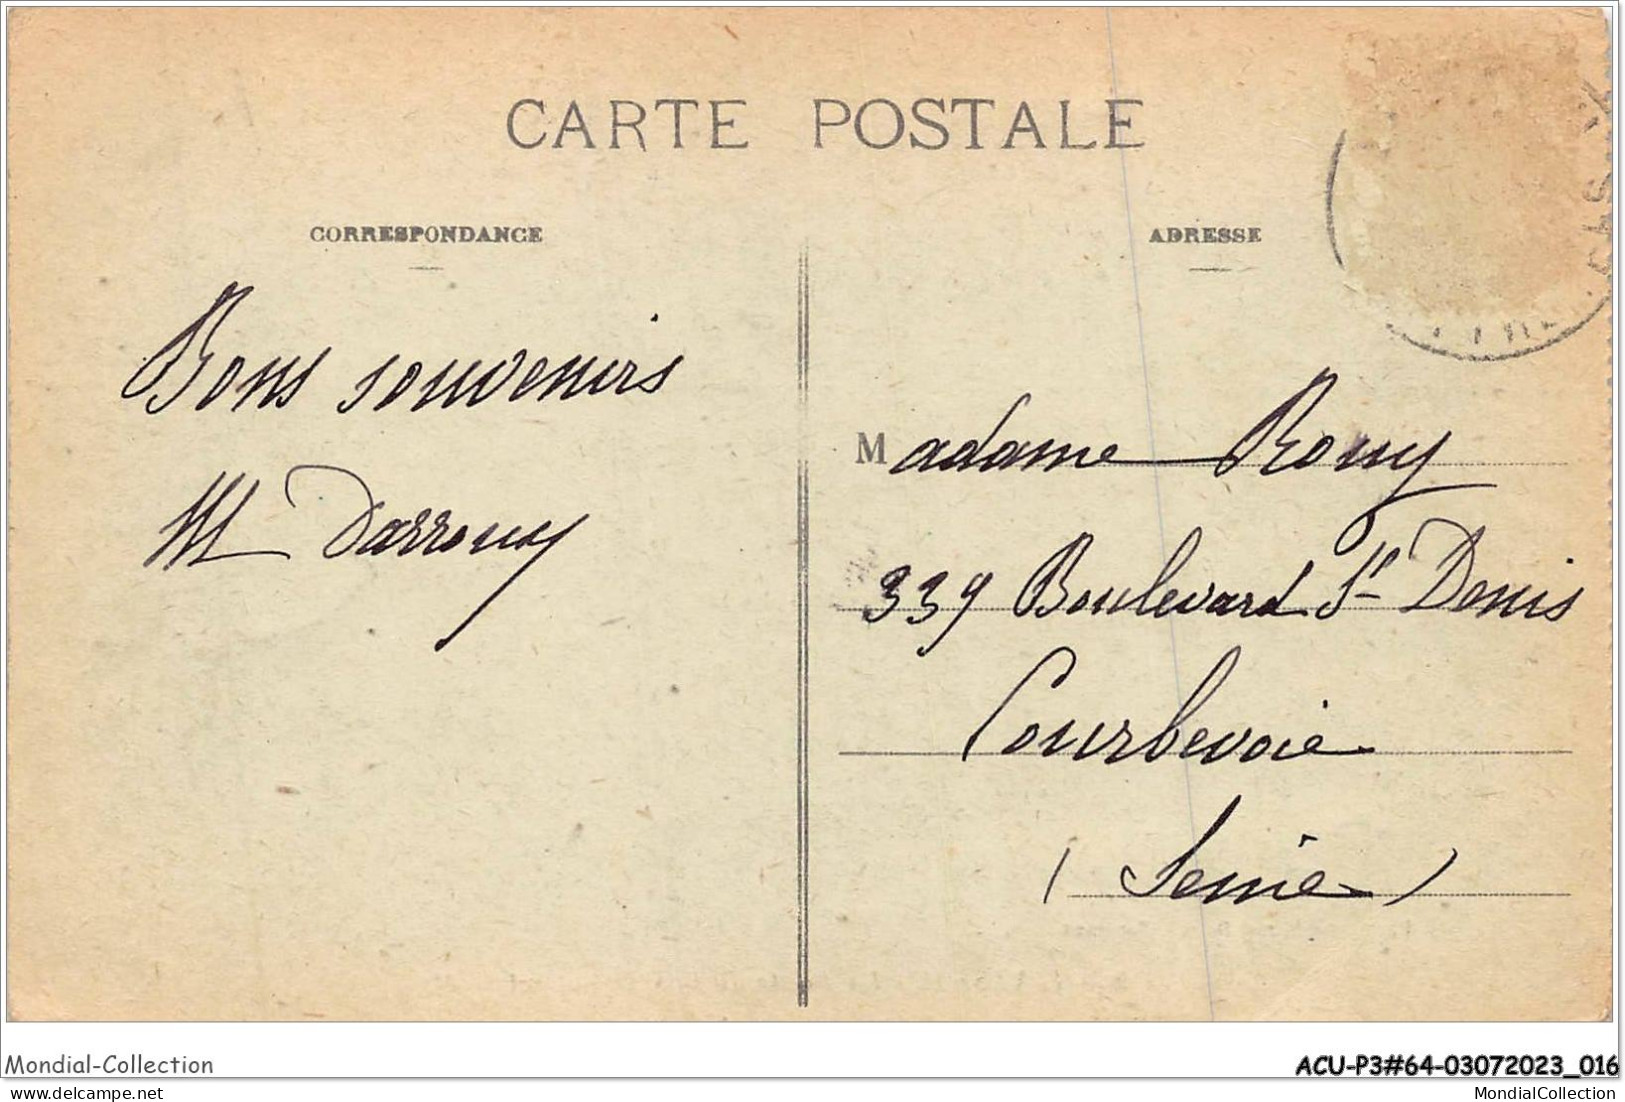 CARTE POSTALE
CORRESPONDANCE
ADRESSE
Bons souvenirs
M Darrouy
Madame Rouy
339 Boulevard St Denis
Courbevoie
(Seine)
Mondial-Collection
ACU-P3#64-03072023_016
MondialCollection
MondialCollection